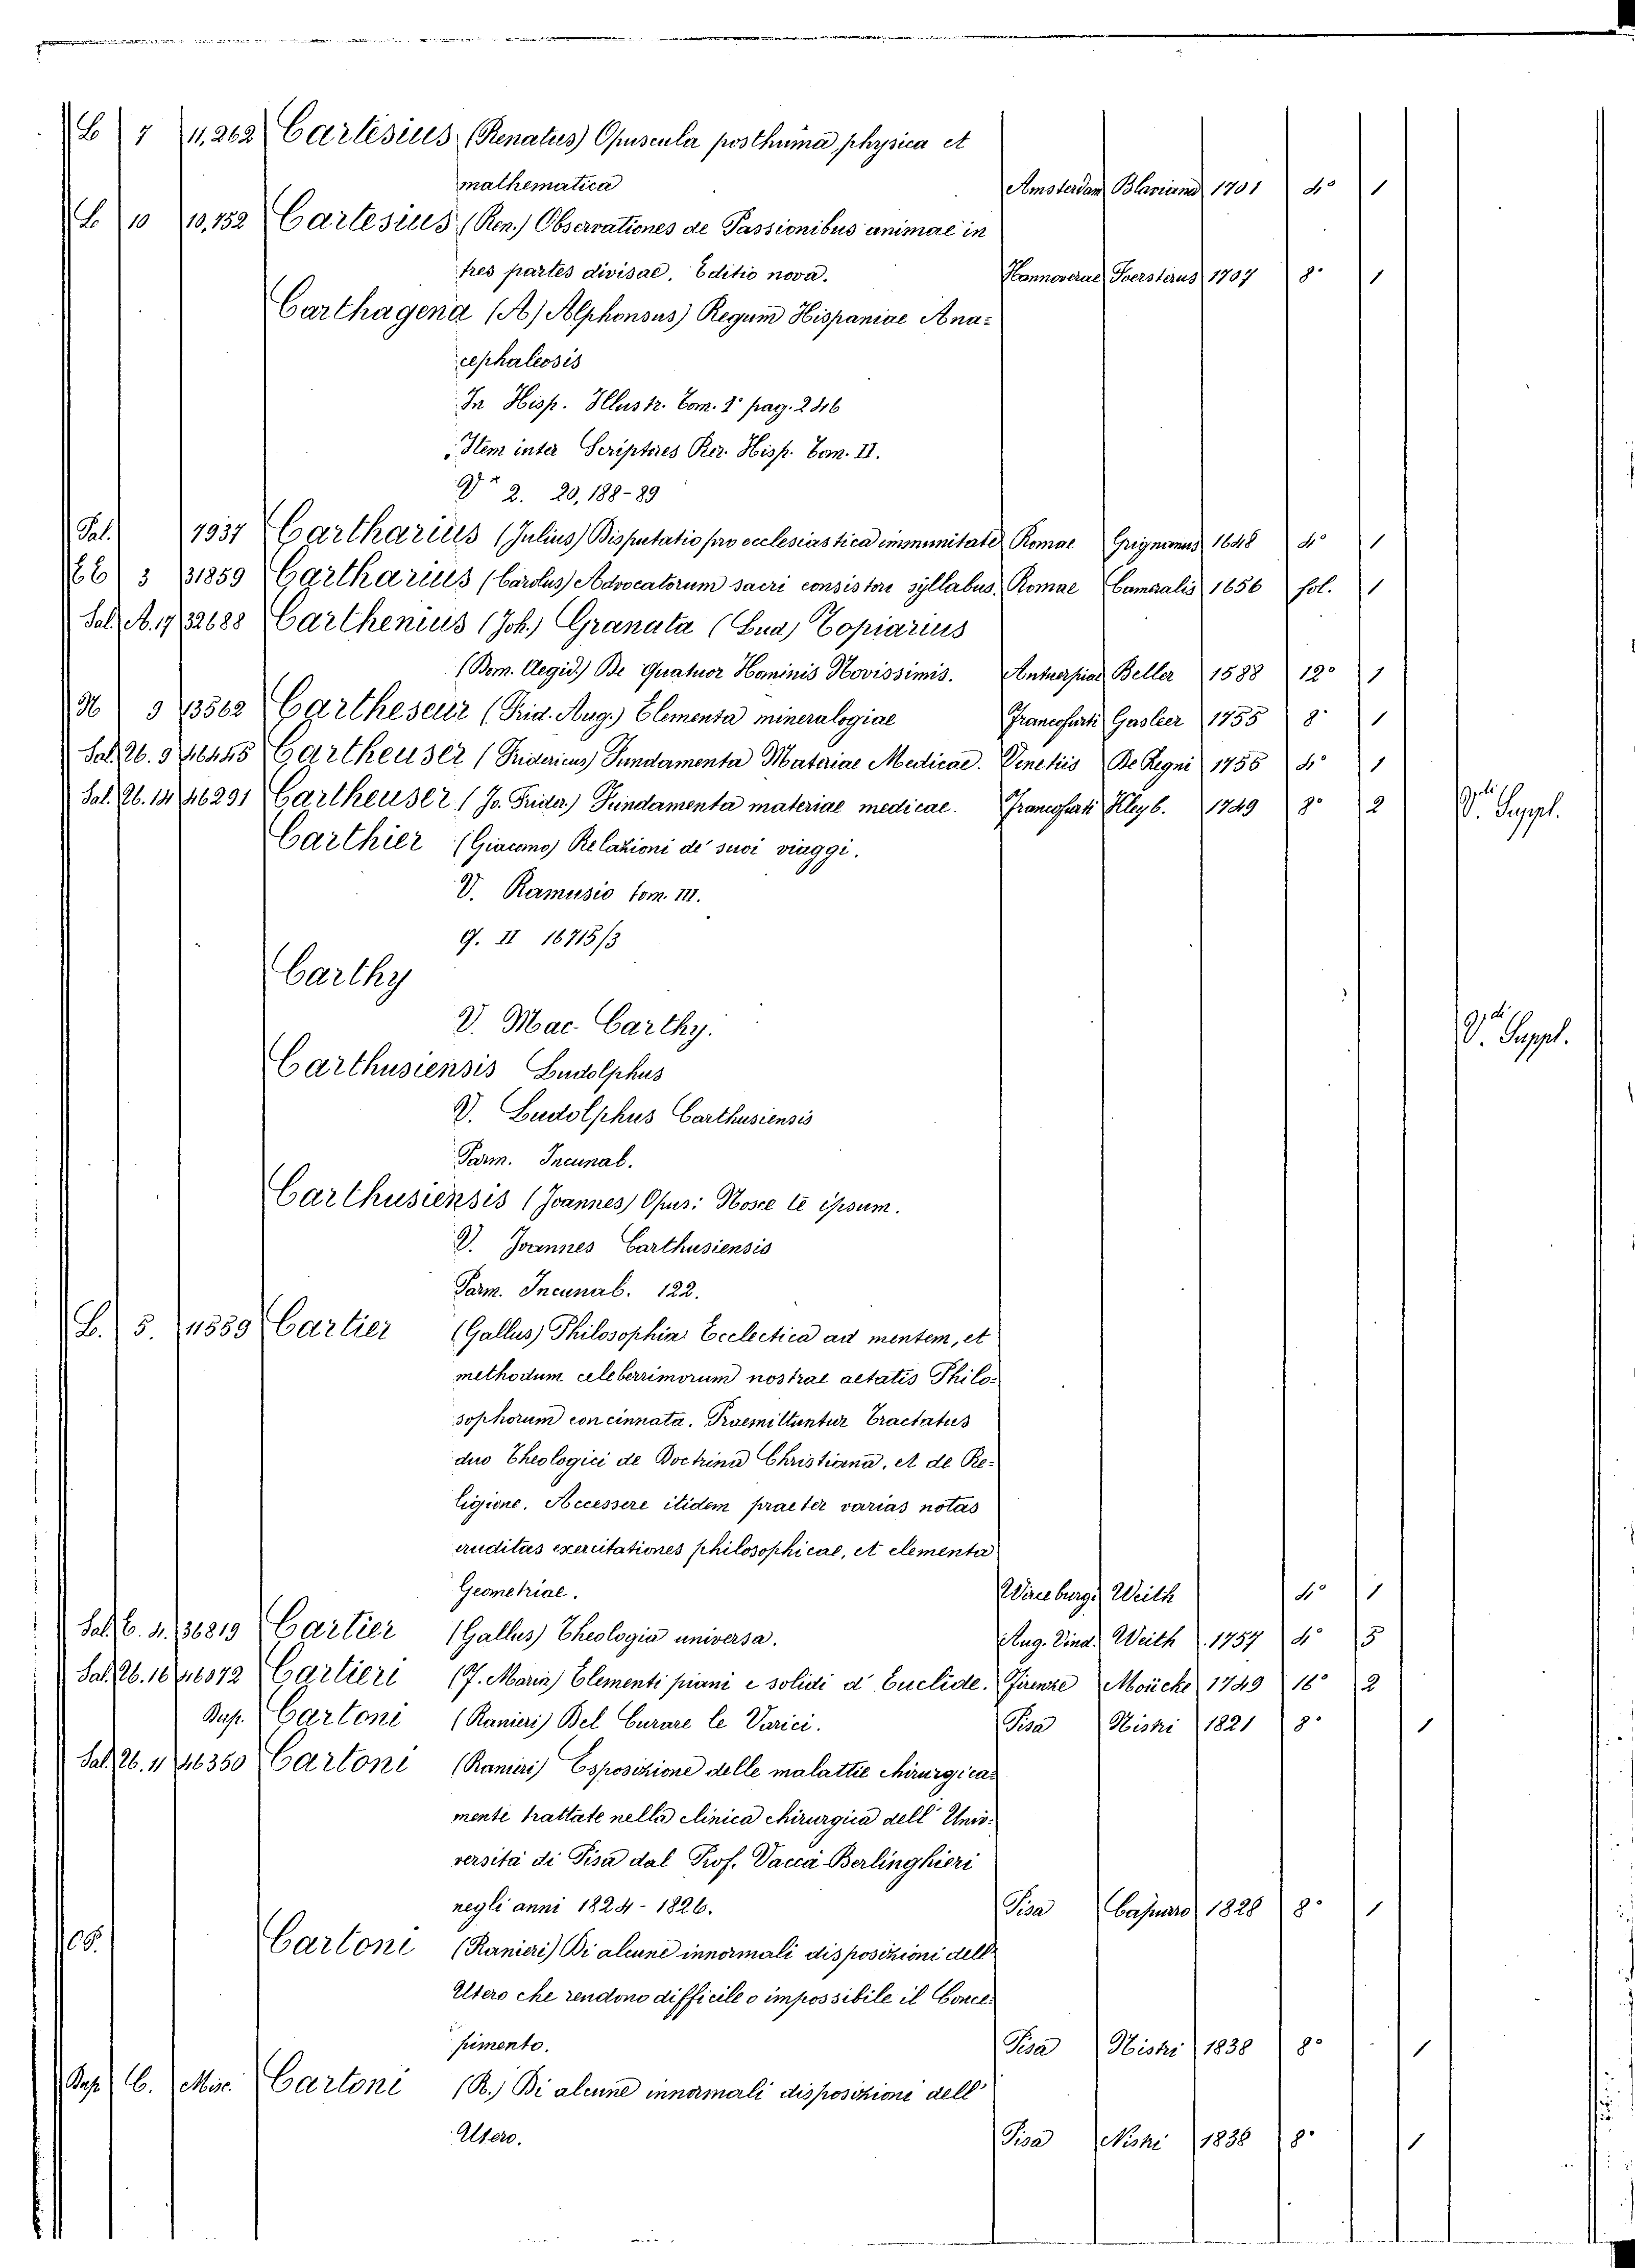 L 7 11,262 Cartesius (Renatus) Opuscula posthuma physica et
mathematica Amsterdam Blaviana 1701 4° 1
L 10 10,752 Cartesius (Ren.) Observationes de Passionibus animae in
tres partes divisae. Editio nova. Hannoverae Foersterus 1707 8° 1
Carthagena (A) Alphonsus) Regum Hispaniae Ana-
cephaleosis
In Hisp. Illustr. Tom. 1° pag. 246
Item inter Scriptores Rer. Hisp. Tom. II.
2. 20,188-89
Pal. 7937 Cartharius (Julius) Disputatio pro ecclesiastica immunitate Romae Grignanus 1648 4° 1
3 31859 Cartharius (Carolus) Advocatorum sacri consistore syllabus. Romae Cameralis 1656 fol. 1
Sal. A. 17 32688 Carthenius (Joh.) Granata (Lud) Copiarius
(Dom. Aegid.) De Quatuor Hominis Novissimis. Antuerpiae Beller 1588 12° 1
N 9 13562 Cartheseur (Frid. Aug.) Elementa mineralogiae Francofurti Gasleer 1755 8° 1
Sal. 26. 9 46445 Cartheuser (Fridericus) Fundamenta Materiae Medicae. Venetiis De Regni 1756 4° 1
Sal. 26. 14 46291 Cartheuser (Jo. Frider.) Fundamenta materiae medicae. Francofurti Kleyb. 1749 8° 2 V. Suppl.
Carthier (Giacomo) Relazioni de' suoi viaggi.
V. Ramusio tom. III.
G. II 16715/3
Carthy
V. Mac-Carthy.
V. Suppl.
Carthusiensis Ludolphus
V. Ludolphus Carthusiensis
Parm. Incunab.
Carthusiensis (Joannes) Opus: Nosce te ipsum.
V. Joannes Carthusiensis
Parm. Incunab. 122.
L. 5. 11559 Cartier (Gallus) Philosophia Ecclectica ad mentem, et
methodum celeberrimorum nostrae aetatis Philo-
sophorum concinnata. Praemittuntur Tractatus
duo Theologici de Doctrina Christiana, et de Re-
ligione. Accessere itidem praeter varias notas
eruditas exercitationes philosophicae, et elementa
Geometriae. Wirceburgi Weith 4° 1
Sal. C. 4. 36819 Cartier (Gallus) Theologia universa. Aug. Vind. Weith 1757 4° 5
Sal. 26. 16 46072 Cartieri (J. Maria) Elementi piani e solidi d' Euclide. Firenze Moücke 1749 16° 2
Dup. Cartoni (Ranieri) Del Curare le Varici. Pisa Nistri 1821 8° 1
Sal. 26. 11 46350 Cartoni (Ranieri) Esposizione delle malattie chirurgica-
mente trattate nella clinica chirurgica dell' Uni-
versità di Pisa dal Prof. Vaccà Berlinghieri
negli anni 1824-1826. Pisa Capurro 1828 8° 1
Cartoni (Ranieri) Di alcune innormali disposizioni dell'
Utero che rendono difficile o impossibile il Conce-
pimento. Pisa Nistri 1838 8° 1
Dup. C. Misc. Cartoni (R.) Di alcune innormali disposizioni dell'
Utero. Pisa Nistri 1838 8° 1